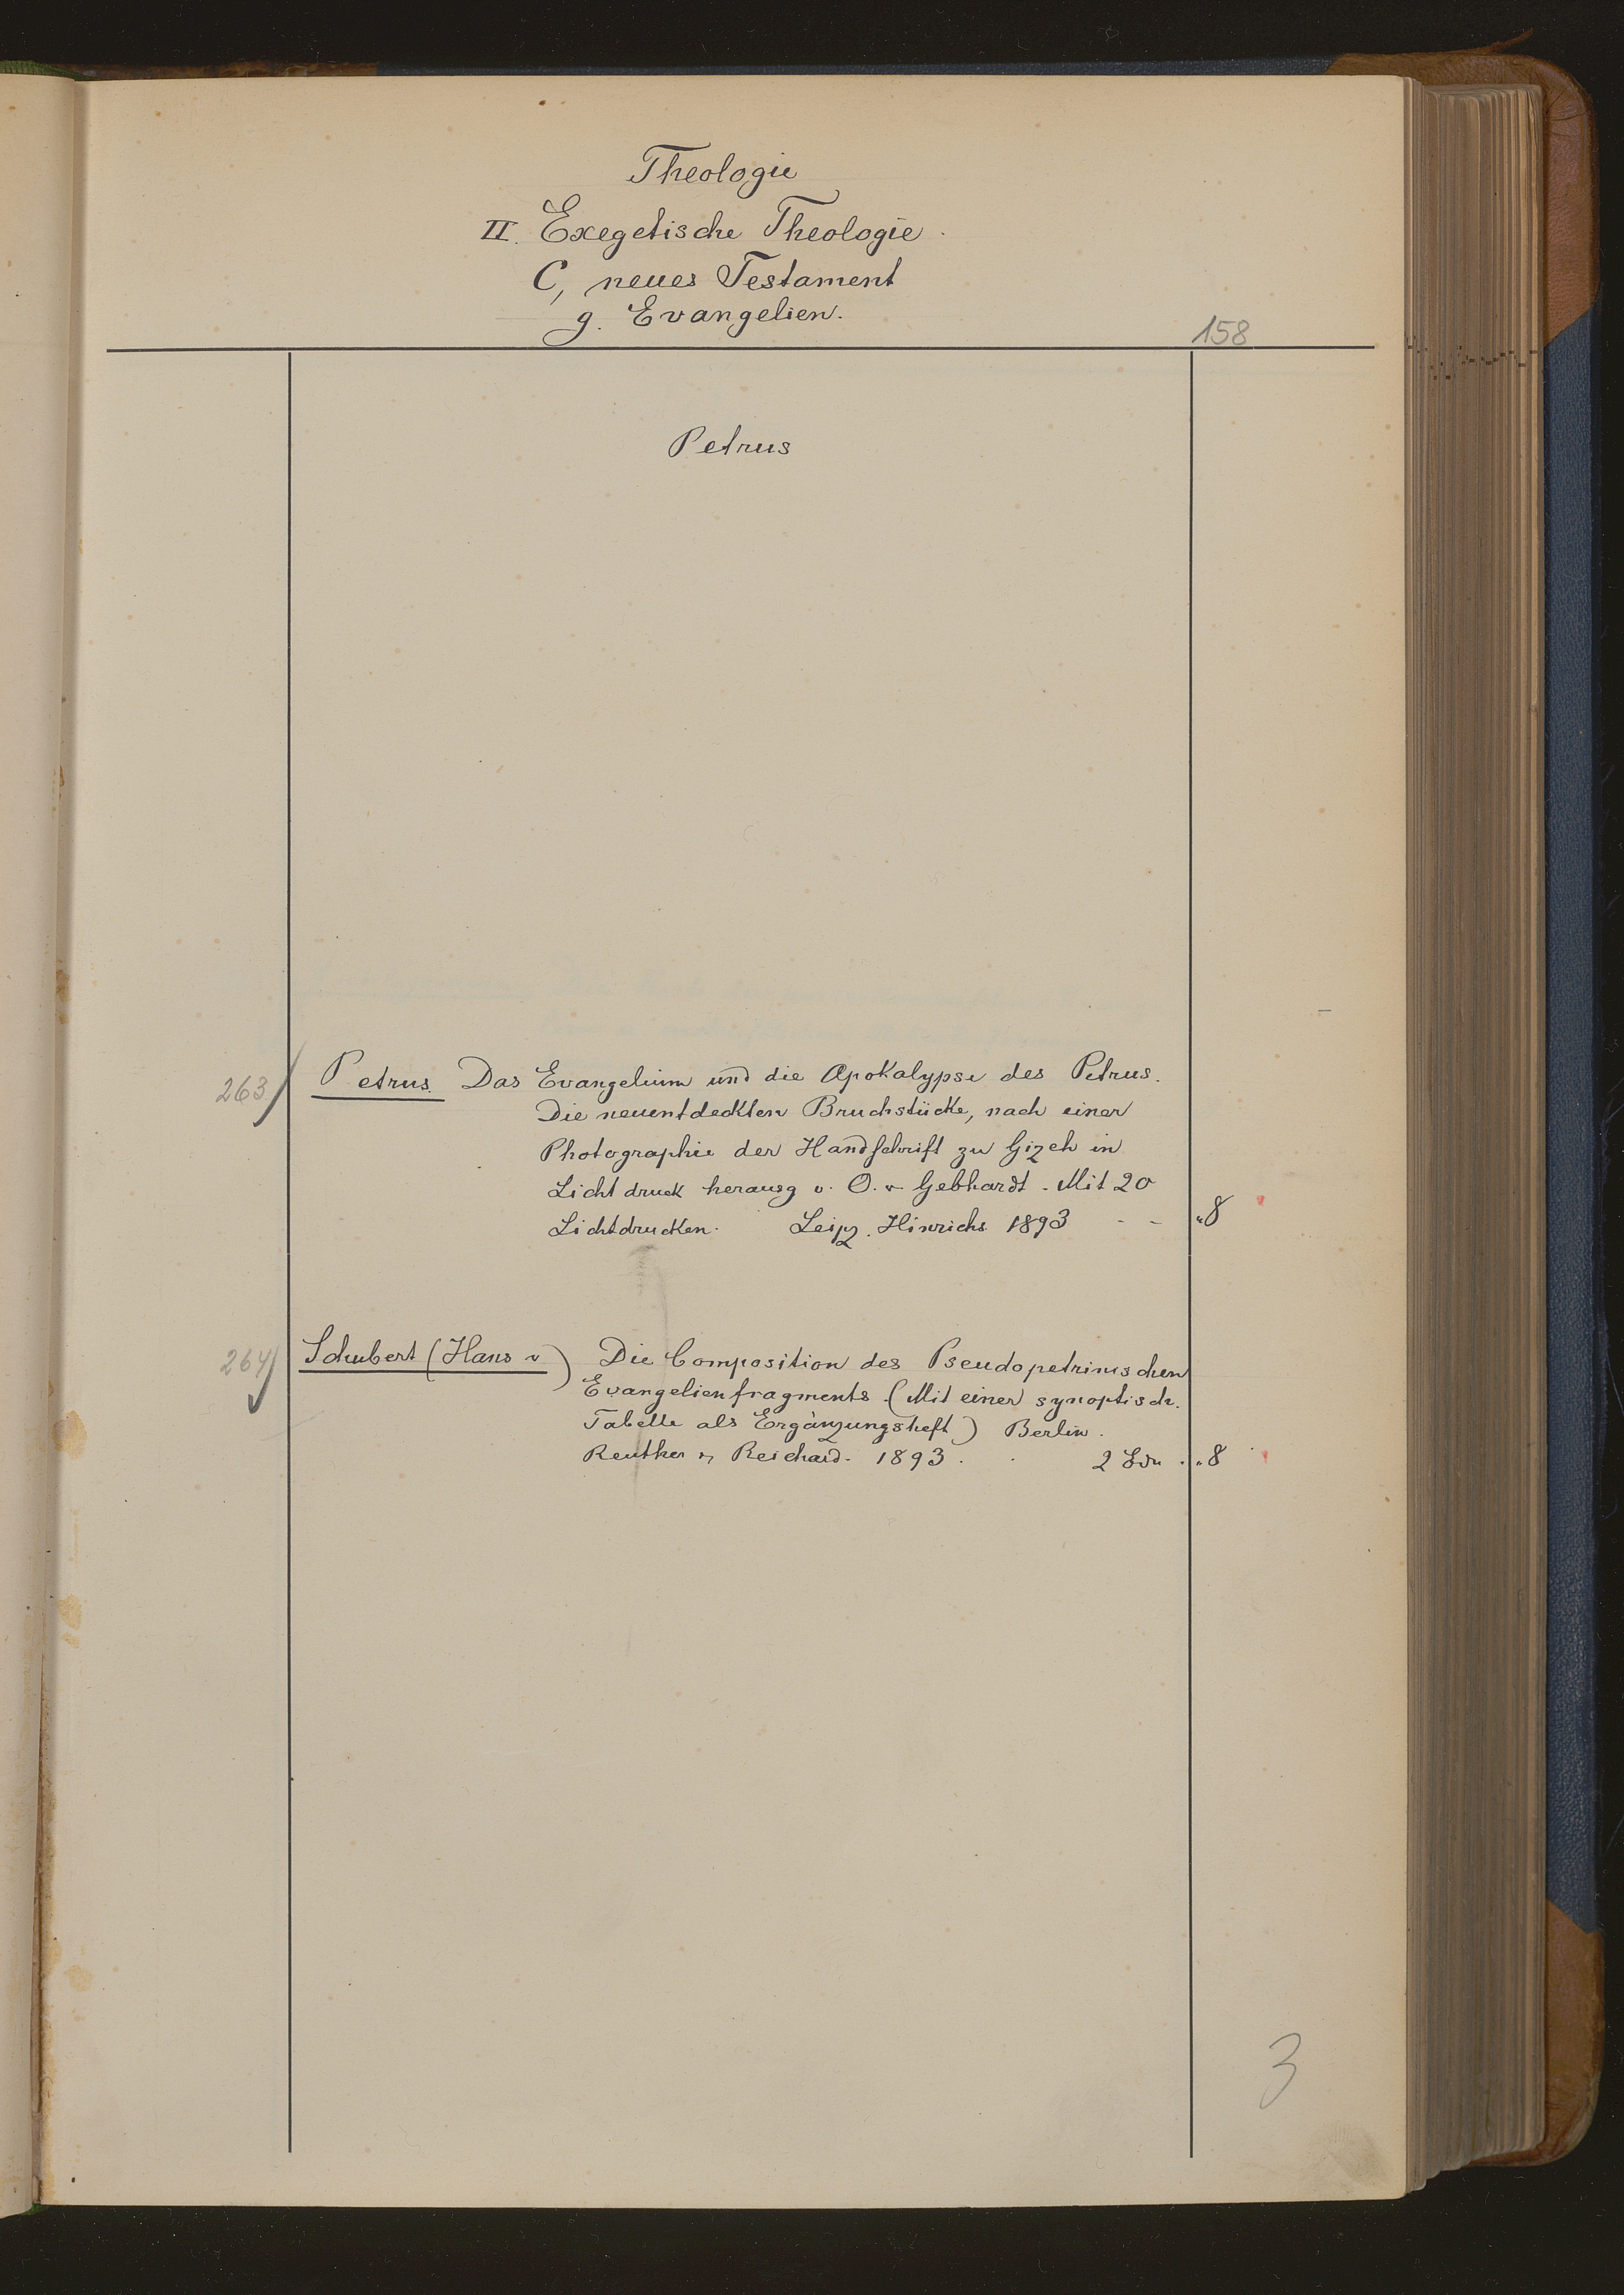 Theologie
II. Exegetische Theologie.
C, neues Testament
g. Evangelien.
158
Petrus
263 Petrus. Das Evangelium und die Apokalypse des Petrus.
Die neuentdeckten Bruchstücke, nach einer
Photographie der Handschrift zu Gizeh in
Lichtdruck herausg v. O. v Gebhardt. Mit 20
Lichtdrucken. Leipz. Hinrichs 1893 - - "8
264 Schubert (Hans v) Die Composition des Pseudopetrinischen
Evangelienfragments. (Mit einer synoptisch.
Tabelle als Ergänzungsheft) Berlin.
Reuther & Reichard. 1893. 2 "8
3